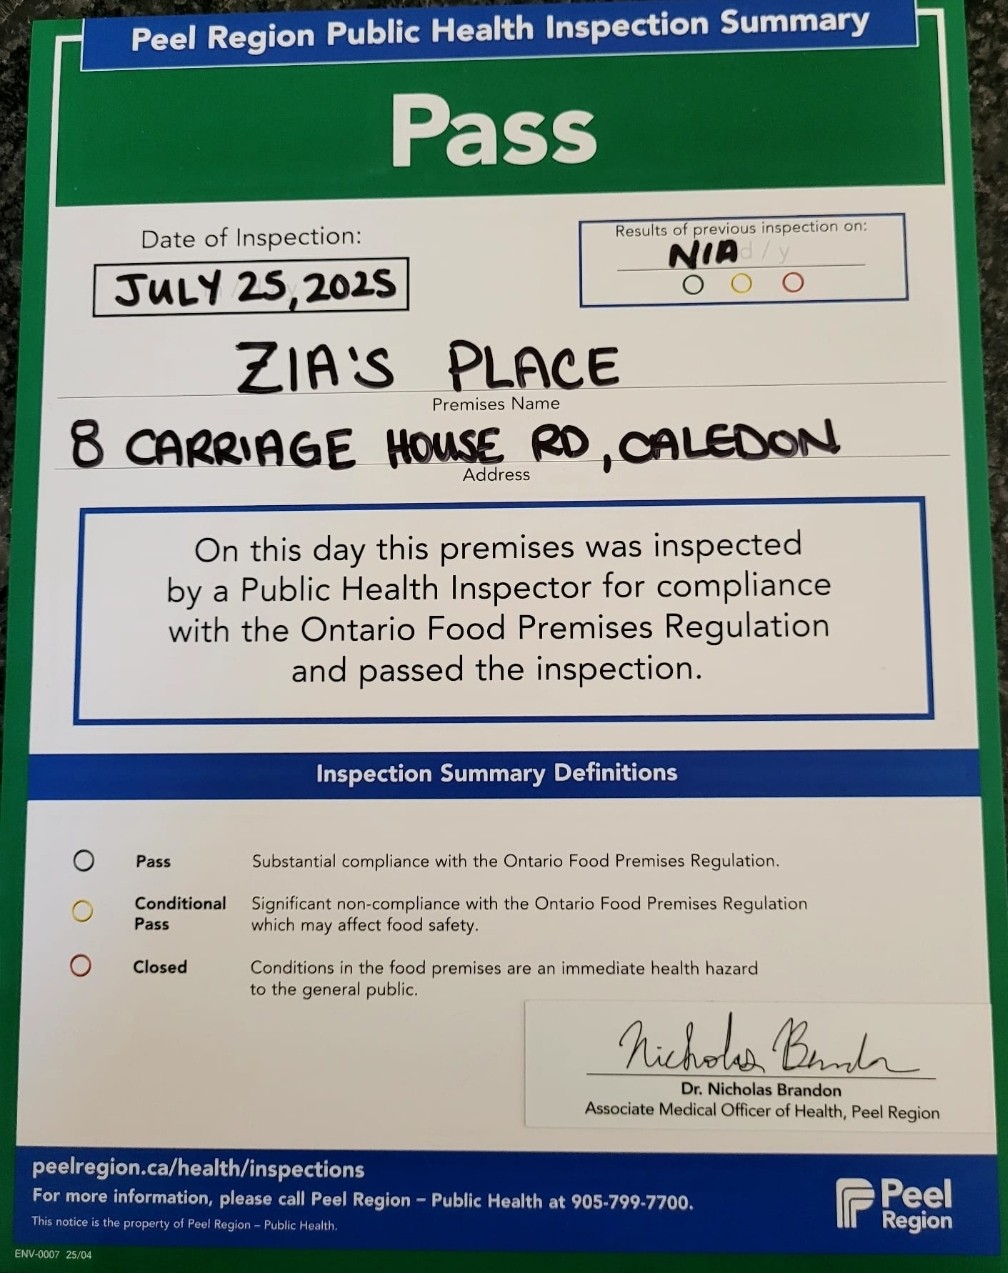 Peel Region Public Health Inspection Summary
Pass
Date of Inspection:
JULY 25, 2025
Results of previous inspection on:
N/A d / y
ZIA'S PLACE
Premises Name
8 CARRIAGE HOUSE RD, CALEDON
Address
On this day this premises was inspected
by a Public Health Inspector for compliance
with the Ontario Food Premises Regulation
and passed the inspection.
Inspection Summary Definitions
Pass Substantial compliance with the Ontario Food Premises Regulation.
Conditional Significant non-compliance with the Ontario Food Premises Regulation
Pass which may affect food safety.
Closed Conditions in the food premises are an immediate health hazard
to the general public.
Nicholas Brandon
Dr. Nicholas Brandon
Associate Medical Officer of Health, Peel Region
peelregion.ca/health/inspections
For more information, please call Peel Region – Public Health at 905-799-7700.
This notice is the property of Peel Region – Public Health.
Peel
Region
ENV-0007 25/04